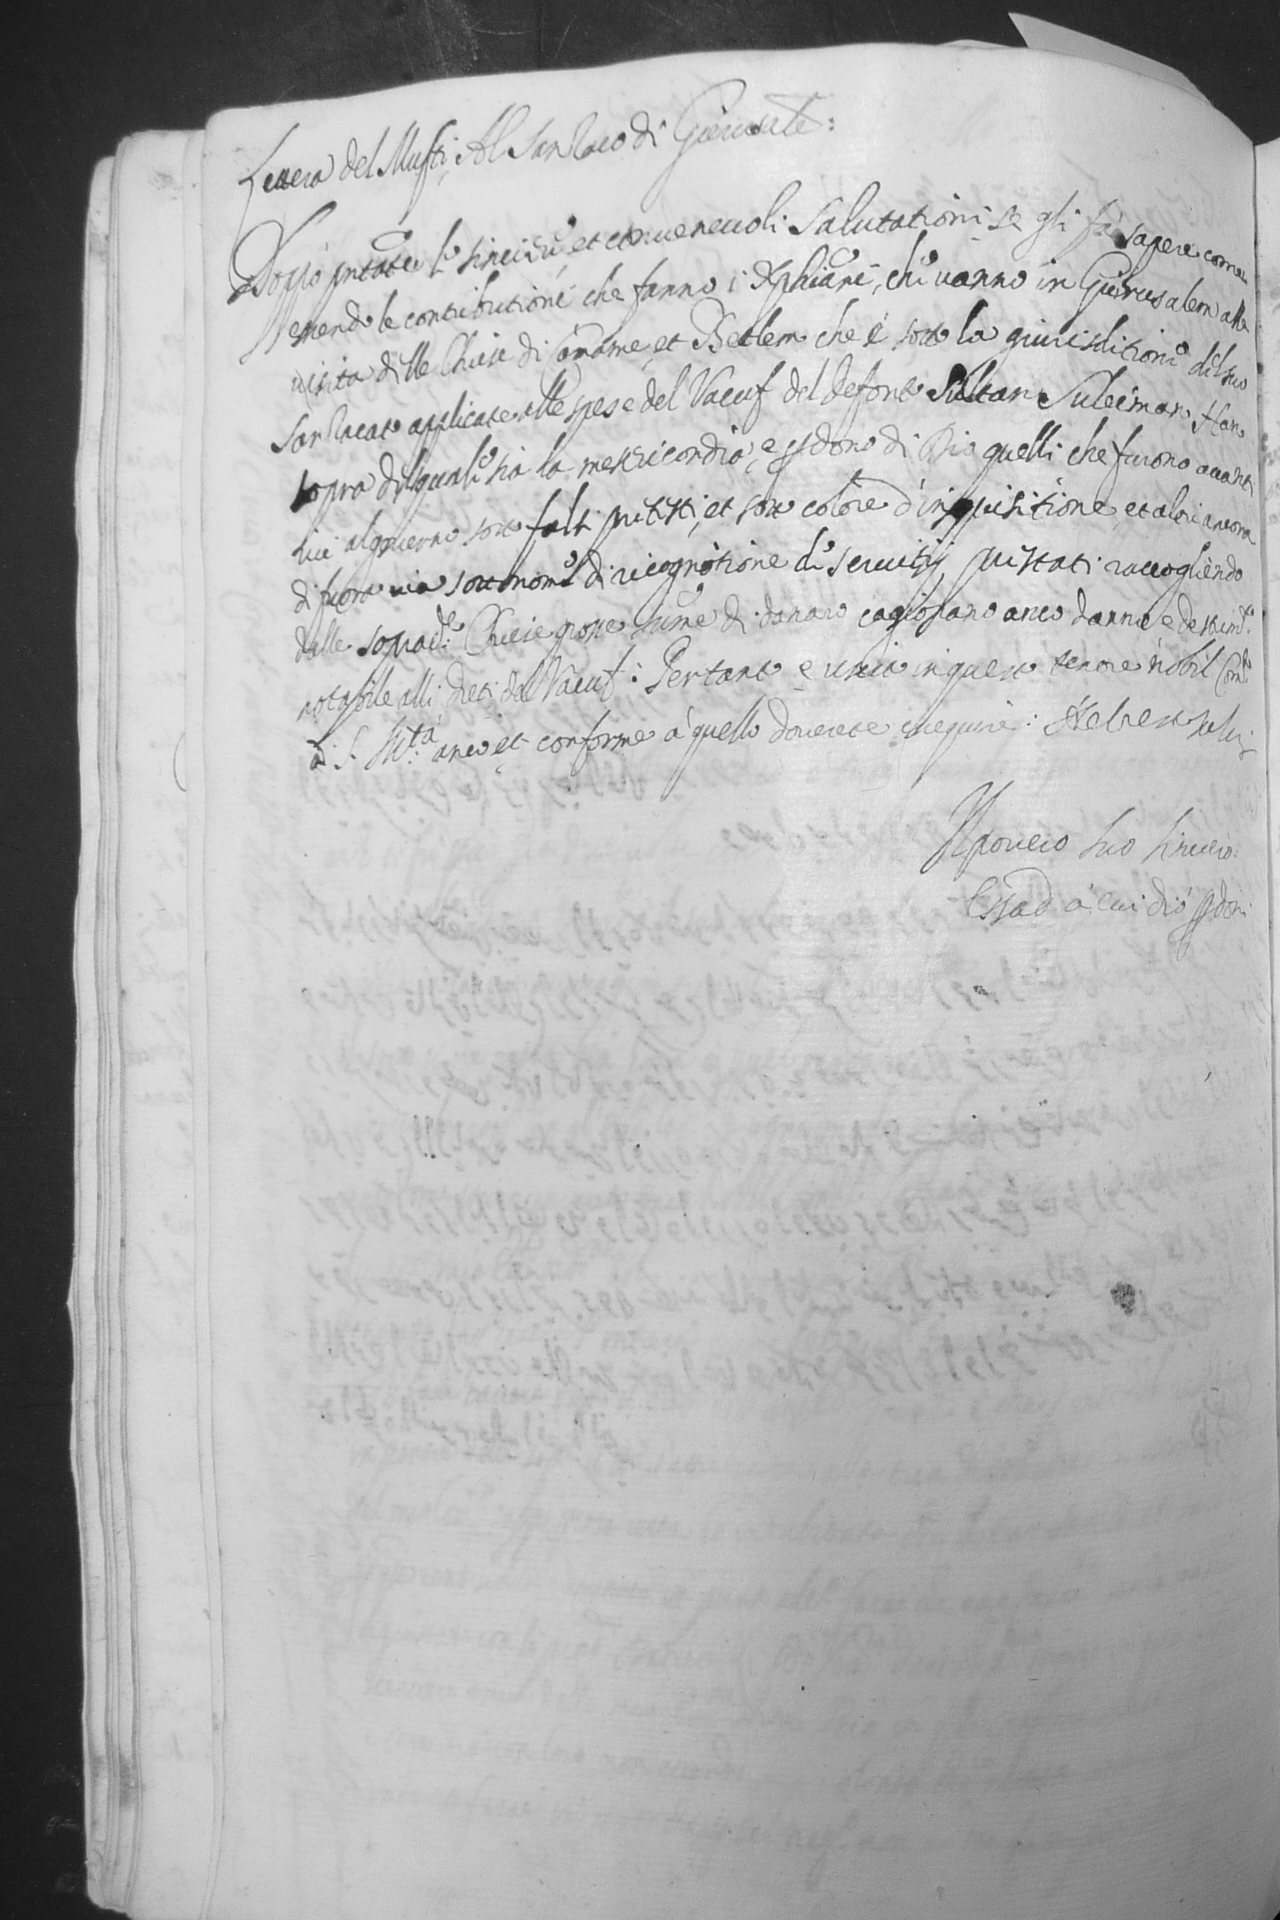 Lettera del Mufti Al Sanzaco di Gierusale:
Doppo pntate le sincere et convenevoli salutationi se gli fà sapere come
essendo le contributioni che fanno i Xphiani, che vanno in Gierusalem alla
visita delle Chiese di Camame, et Betlem che è sotto la giurisditione del suo
Sanzacato applicate alle spese del Vacuf del defonto Sultan Suleiman Han
sopra del quale sia la misericordia, e pdono di Dio quelli che furono avanti
lui al governo sotto falsi ptesti, et sotto colore d'inquisitione, et altri ancora
di fuora via sotto nome di ricognitione di servitij prestati raccogliendo
dalle soprad.e Chiese grosse sume di danaro cagionano anco danno e detrim.to
notabile alli detti del Vacuf: Pertanto è uscito in questo tenore nobil Com.to
di S. M.tà anco et conforme à quello doverete esequire: Nel resto salute
Il povero suo sincero:
Essad à cui dio pdoni